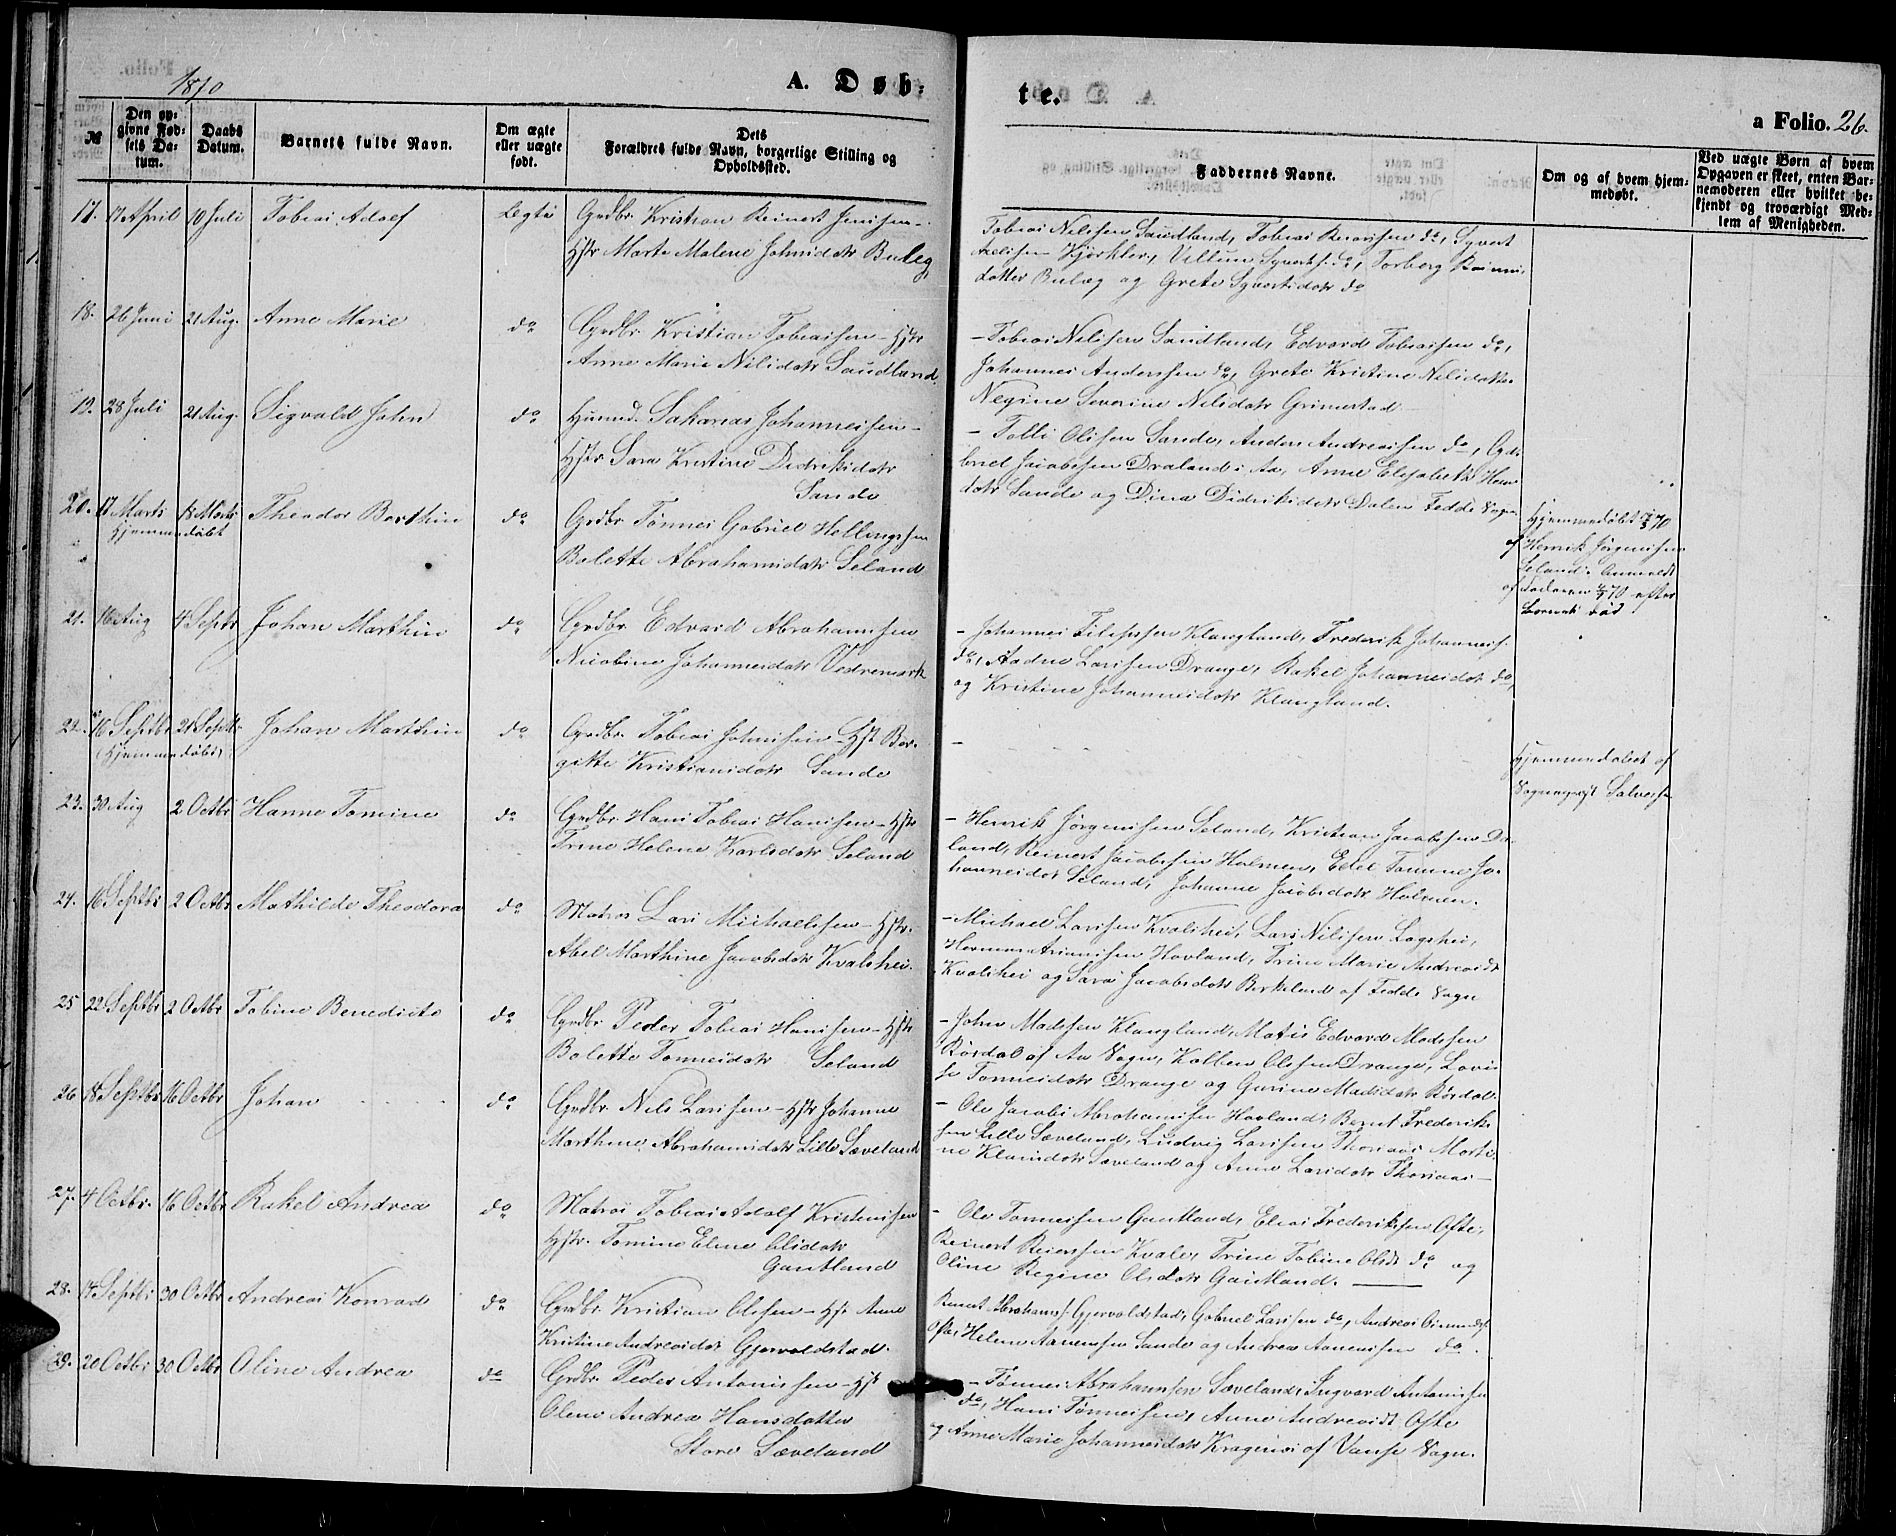 1870
A. Døb-
te.
a Folio. 26.
№
Den op-
givne Fød-
sels Da-
tum.
Daabs
Datum.
Barnets fulde Navn.
Om ægte
eller uægte
født.
Dets
Forældres fulde Navn, borgerlige Stilling og
Opholdssted.
Faddernes Navne.
Om og af hvem hjem-
medøbt.
Ved uægte Børn af hvem
Opgaven er skeet, enten Bar-
nemoderen eller hvilket be-
kjendt og troværdigt Med-
lem af Menigheden.
17. 17 April 10 Juli Tobias Adolf Ægte Grdbr. Kristian Reinert Jensen -
Hstr Marte Malene Johnsdatr Buleg
Tobias Nilssen Sandland, Tobias do, Syvert
Villum Syverts. do, Torborg
datter Buleg og Grete Syvertsdatr do
18. 26 Juni 21 Aug. Anne Marie do Grdbr. Kristian Tobiassen - Hstr
Anne Marie Nilsdatr Sandland.
- Tobias Nilssen Sandland, Edvard Tobiassen do,
Johannes Anderssen do, Grete Kristine Nilsdatter
Regine Severine Nilsdatr Grimestad -
19. 28 Juli 21 Aug. Sigvald John do Husmd. Sakarias Johannessen -
Hstr Sara Kristine Didriksdatr
Sande
- Tolli Olssen Sande, Anders Andreassen do, Ga-
briel Jacobssen Draland i Aa, Anne Elisabeth
datr Sande og Dina Didriksdatr Dalen Fedde Sogn
20. 17 Marts 18 Marts Theodor Barthin do Grdbr. Tønnes Gabriel Hellingssen
Hjemmedøbt
Bolette Abrahamsdatr Seland
Hjemmedøbt 18/3 70
af Henrik Jørgenssen
Seland. Anmeldt
af Faderen 70 efter
Barnets død
21. 16 Aug 4 Septr Johan Marthin do Grdbr. Edvard Abrahamssen
Nicobine Johannesdatr Vedremork
- Johannes Filipssen Klungland, Frederik Johanness.
do, Aadne Larssen Drange, Rakel Johannesdatr do,
og Kristine Johannesdatr Klungland.
22. 16 Septbr 21 Septbr Johan Marthin do Grdbr. Tobias Johnssen - Hst Ber-
(Hjemmedøbt)
gitte Kristiansdatr Sande
-
Hjemmedøbt af
Sogneprest Salvesen
23. 30 Aug 2 Octbr Hanne Tomine do Grdbr. Hans Tobias Hanssen - Hstr
Trine Helene Karlsdatr Seland
- Henrik Jørgenssen Seland, Kristian Jacobssen Dra-
land, Reinert Jacobssen Holmen, Edel Tomine Jo-
hannesdatr Seland, Johanne Jacobsdatr Holmen.
24. 16 Septbr 2 Octbr Mathilde Theodora do Matros Lars Michaelssen - Hstr.
Abel Marthine Jacobsdatr Kvalshei.
- Michael Larssen Kvalshei, Lars Nilssen Lagshei,
Herman Hovland, Trine Marie Andreasdt
Kvalshei og Sara Jacobsdatr Birkeland af Fedde Sogn
25 22 Septbr 2 Octbr Tobine Benedicte do Grdbr Peder Tobias Hanssen - Hstr
Bolette Tønnesdatr Seland
- John Madssen Klungland, Matis Edvard Madssen
Rørdal af Aa Sogn, Kolben Olssen Drange, Lovi-
se Tønnesdatr Drange og Gurine Madsdatr Rørdal.
26 18 Septbr 16 Octbr Johan do Grdbr. Nils Larssen - Hstr Johanne
Marthine Abrahamsdatr Lille Sæveland
- Ole Jacobs Abrahamssen Hovland, Bernt Frederik-
sen Lille Sæveland, Ludvig Larssen Thoriaas, Marthi-
ne Sæveland og Anne Larsdatr Thoriaas -
27. 4 Octbr. 16 Octbr Rakel Andrea do Matros Tobias Adolf Kristenssen
Hstr. Tomine Elene Olsdatr
Gautland
- Ole Tønnessen Gautland, Elias Frederikssen Ofte,
Reinert Reierssen Kvale, Trine Tobine Olsdt do og
Oline Regine Olsdatr Gautland.
28. 14 Septbr 30 Octbr Andreas Konrad do Grdbr. Kristian Olssen - Hst Anne
Kristine Andreasdtr Gjervoldstad.
Bernt Abrahams. Gjervoldstad, Gabriel Larssen do, Andreas
Ofte, Helene Aanenssen Sande og Andrea Aanenssen do.
29. 20 Octbr 30 Octbr Oline Andrea do Grdbr. Peder Antonissen - Hst
Olene Andrea Hansdatter
Store Sæveland
- Tønnes Abrahamssen Sæveland, Ingvard Antonissen
do, Hans Tønnessen, Anne Andreasdt Ofte
og Anne Marie Johannesdatr af Vanse Sogn.